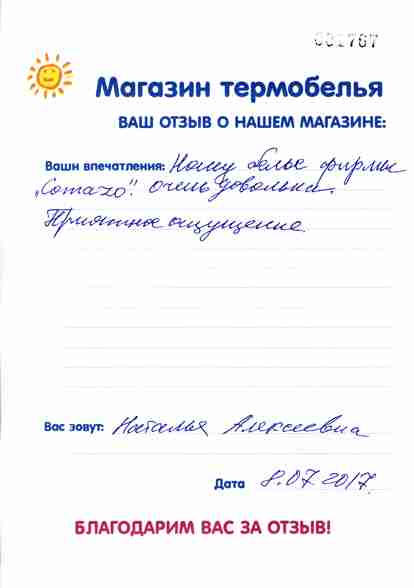 001767
Магазин термобелья
ВАШ ОТЗЫВ О НАШЕМ МАГАЗИНЕ:
Ваши впечатления: Ношу белье фирмы
„Comazo". Очень довольна.
Приятное ощущение
Вас зовут: Наталья Алексеевна
Дата 8.07.2017.
БЛАГОДАРИМ ВАС ЗА ОТЗЫВ!